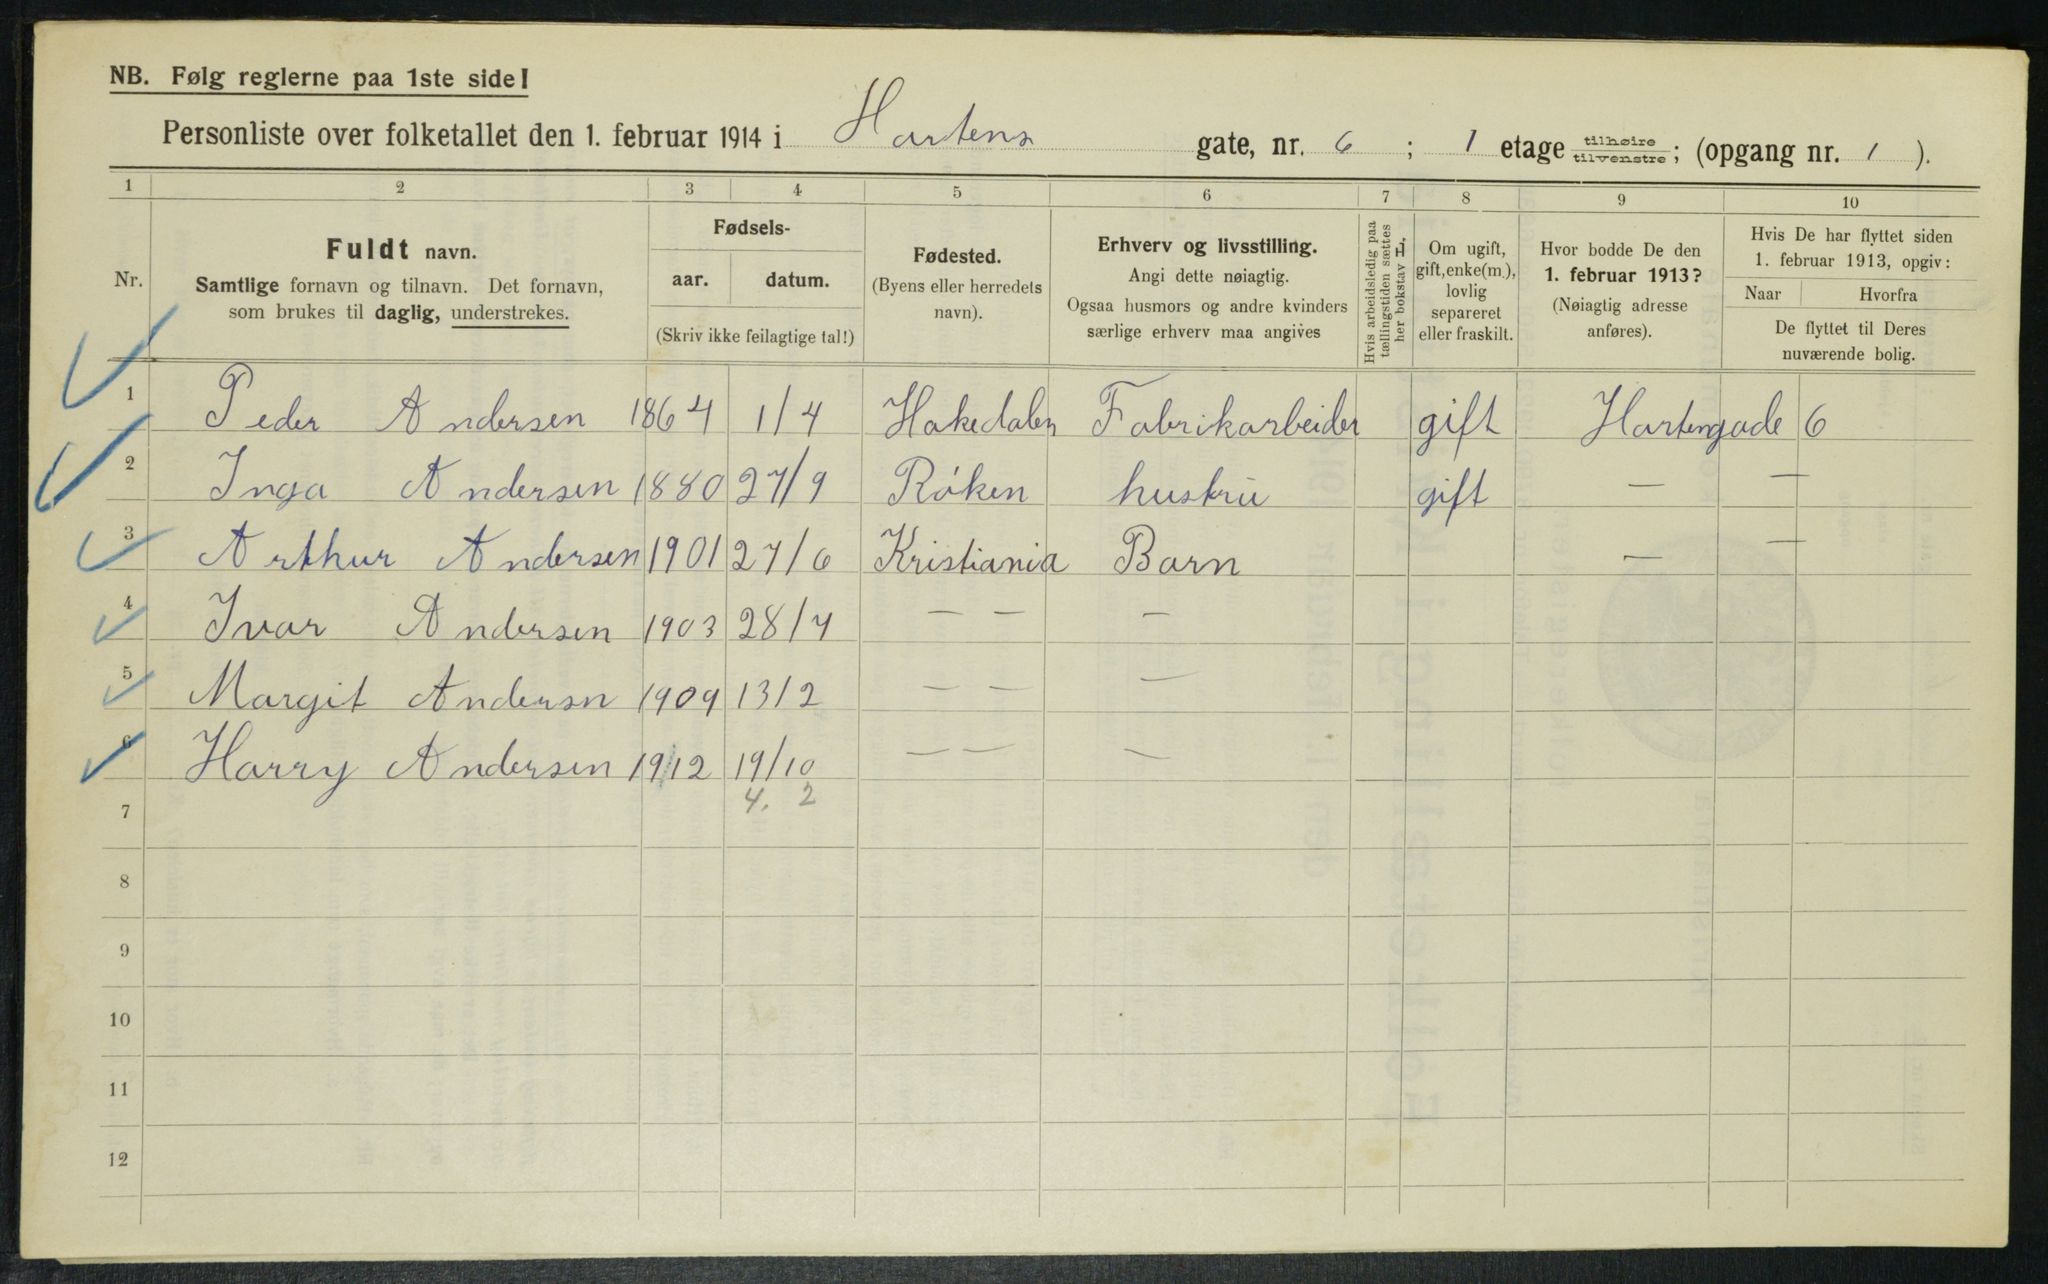 NB. Følg reglerne paa 1ste side!
Personliste over folketallet den 1. februar 1914 i Hartens gate, nr. 6 ; 1 etage tilhøire tilvenstre; (opgang nr. 1 ).
1 2 3 4 5 6 7 8 9 10
Nr.
Fuldt navn.
Samtlige fornavn og tilnavn. Det fornavn,
som brukes til daglig, understrekes.
Fødsels-
aar. datum.
(Skriv ikke feilagtige tal!)
Fødested.
(Byens eller herredets
navn).
Erhverv og livsstilling.
Angi dette nøiagtig.
Ogsaa husmors og andre kvinders
særlige erhverv maa angives
Hvis arbeidsledig paa
tællingstiden sættes
her bokstav
Om ugift,
gift, enke(m.),
lovlig
separeret
eller fraskilt.
Hvor bodde De den
1. februar 1913?
(Nøiagtig adresse
anføres).
Hvis De har flyttet siden
1. februar 1913, opgiv:
Naar Hvorfra
De flyttet til Deres
nuværende bolig.
1 Peder Andersen 1864 1/4 Hakedalen Fabrikarbeider gift Hartengade 6
2 Inga Andersen 1880 27/9 Røken hustru gift — —
3 Arthur Andersen 1901 27/6 Kristiania Barn — —
4 Ivar Andersen 1903 28/7 — — —
5 Margit Andersn 1909 13/2 — — —
6 Harry Andersen 1912 19/10 — — —
4. 2
7
8
9
10
11
12